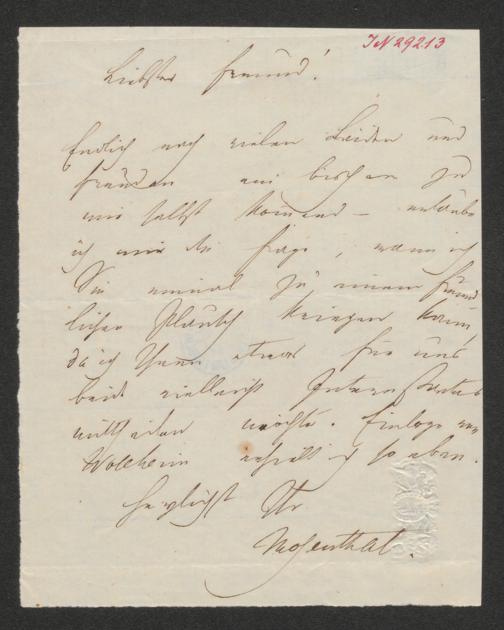 IN 29213
Liebster Freund!
Endlich nach vielen Leiden und
Freuden ein bischen zu
mir selbst kom̅end – erlaube
ich mir die Frage, wann ich
Sie einmal zu einem freund
lichen Plausch kriegen kann,
da ich Ihnen etwas für uns
beide vielleicht Interessantes
mittheilen möchte. Einlage von
Wollheim erhielt ich so eben.
Herzlichst Ihr
Mosenthal.